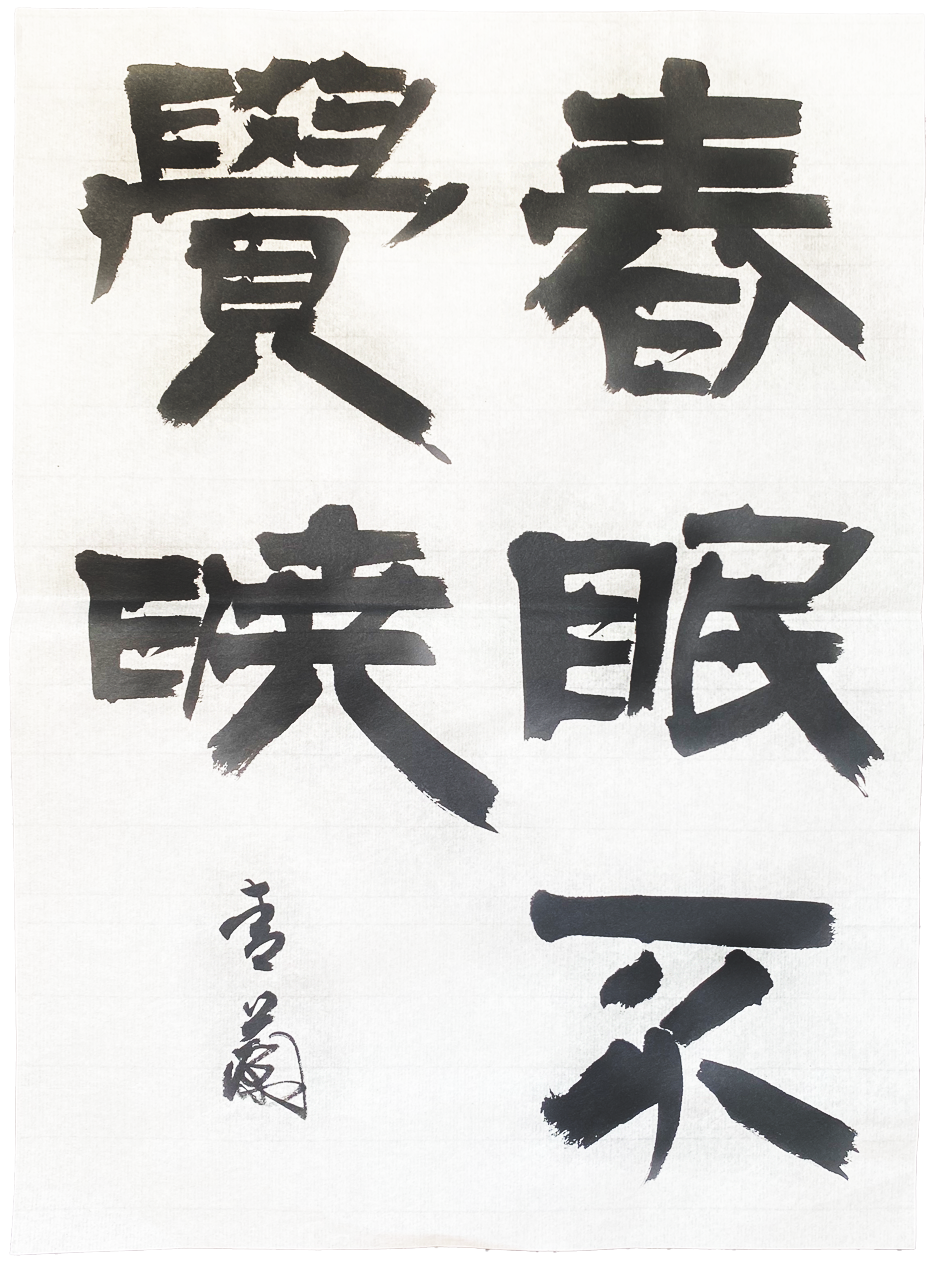 春眠不
覺曉
青蘭